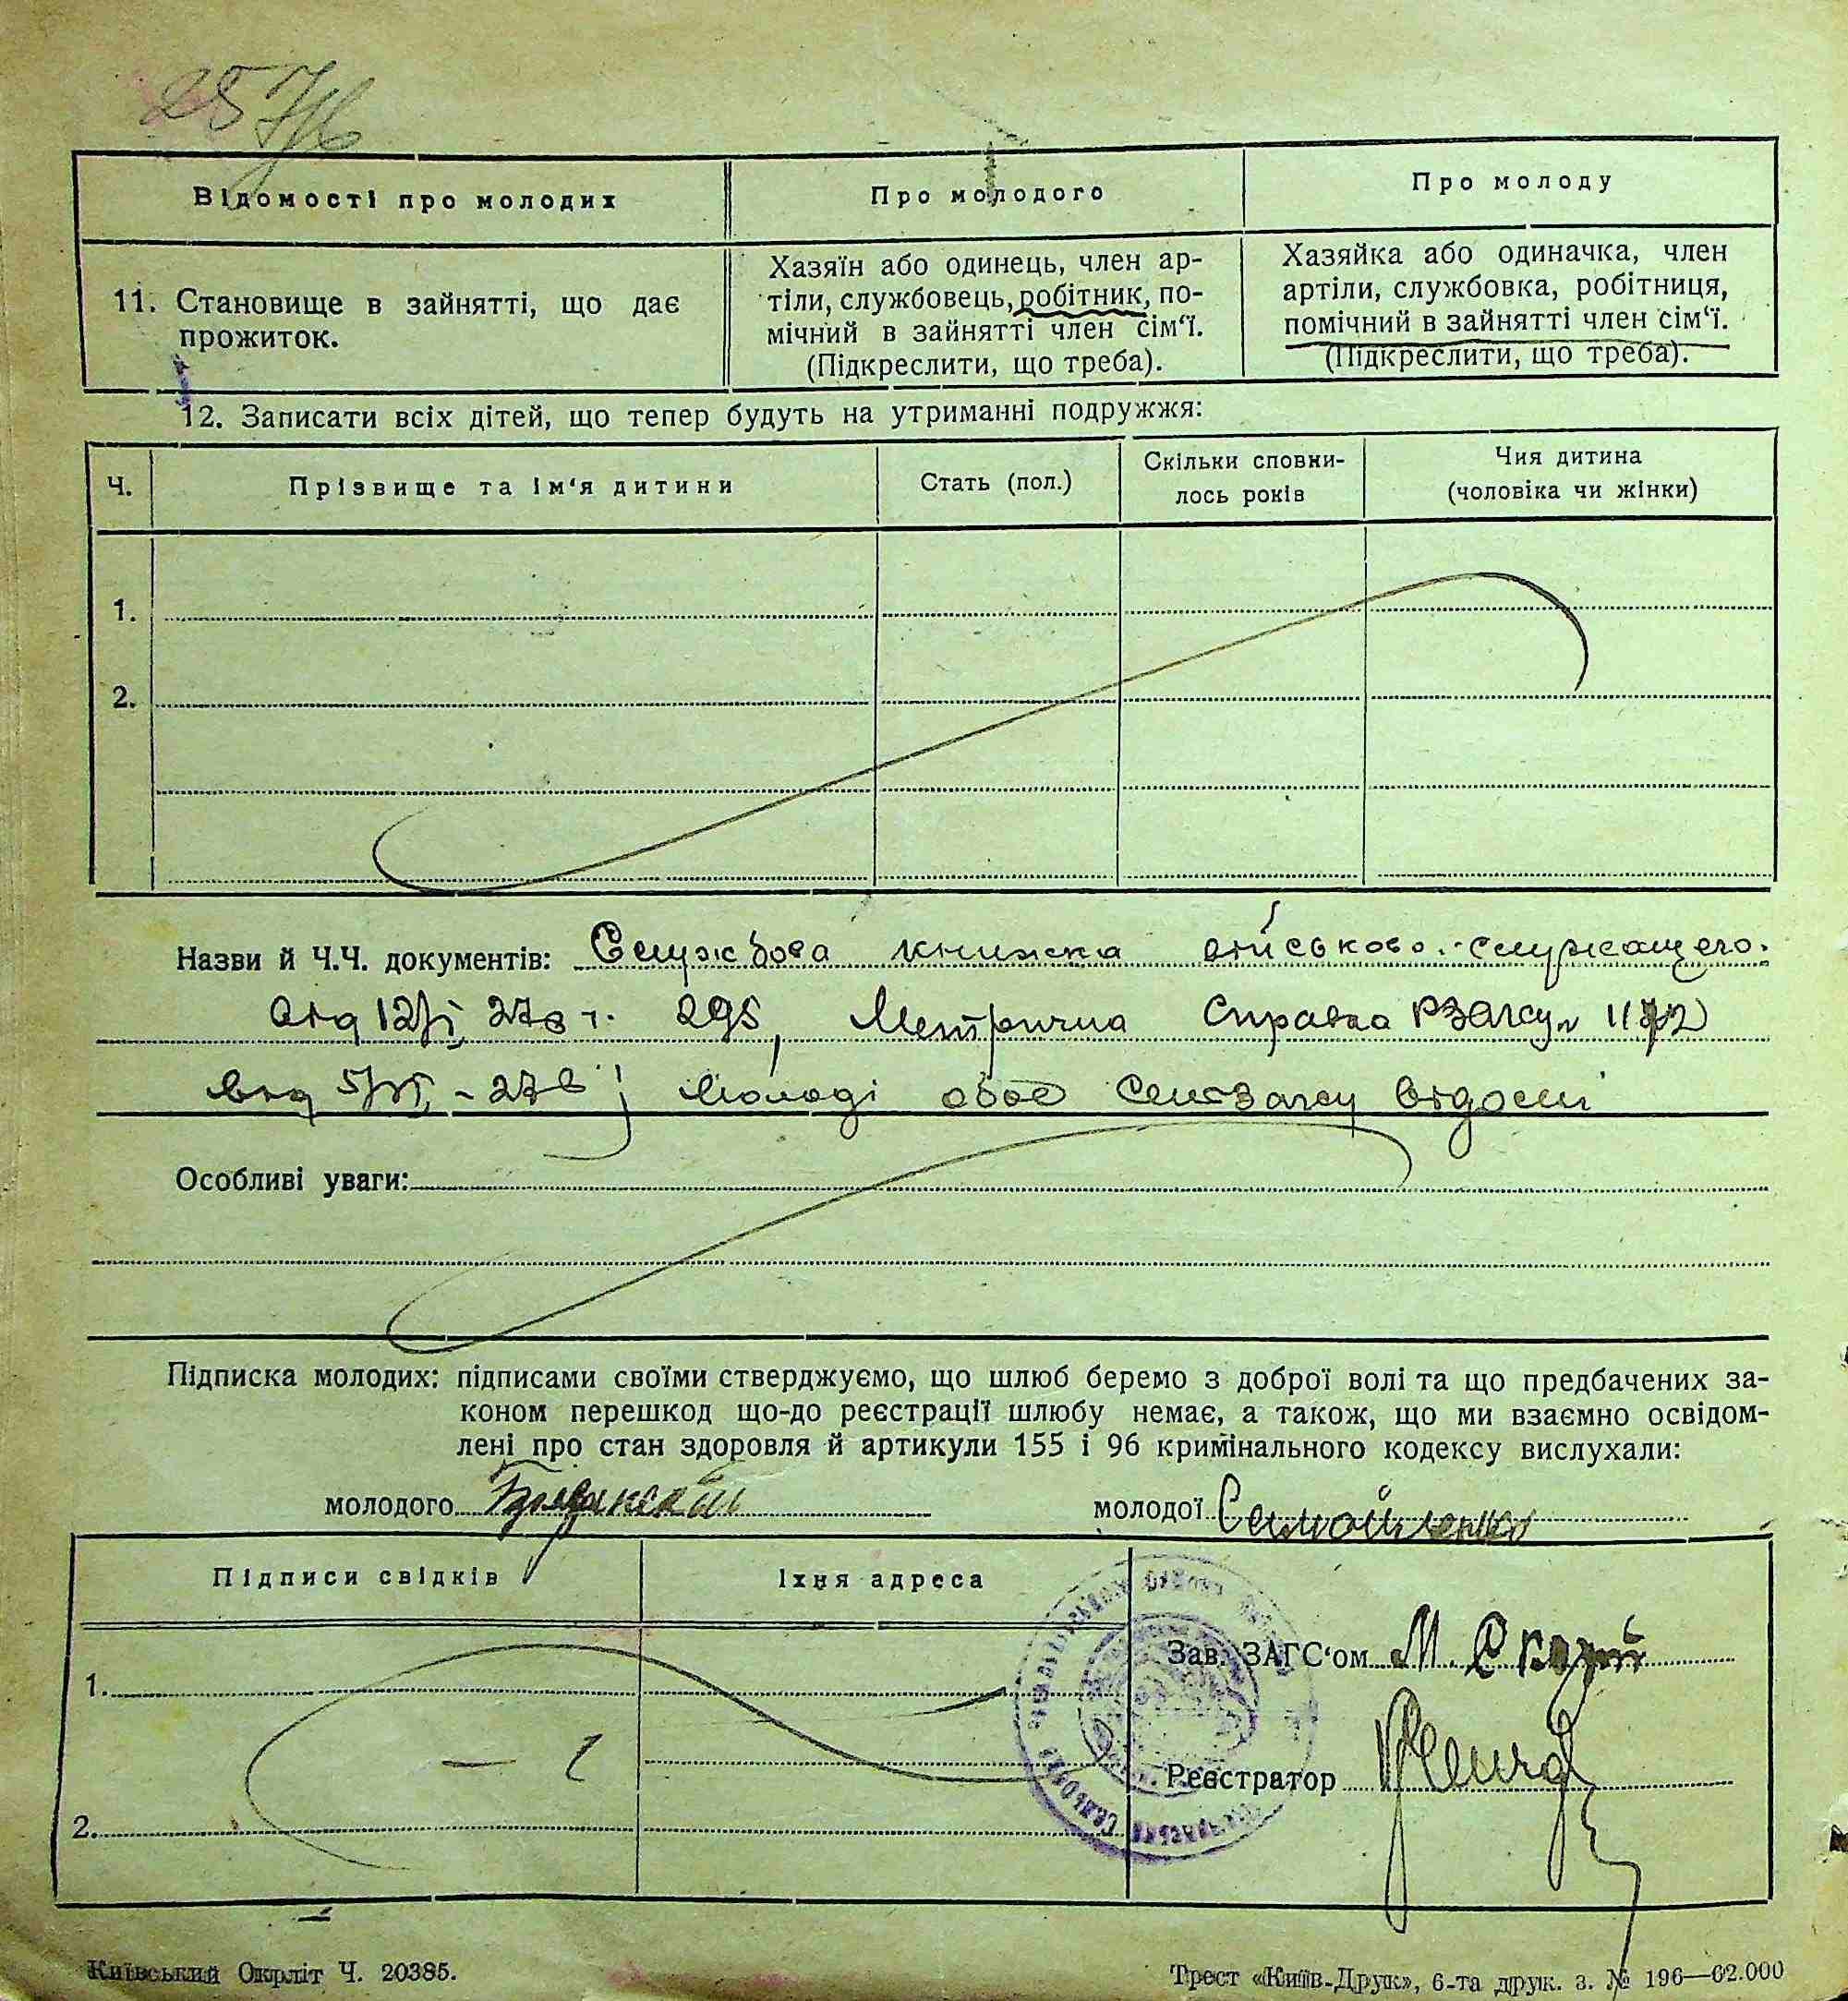 Відомості про молодих
Про молодого
Про молоду
11. Становище в зайнятті, що дає
прожиток.
Хазяїн або одинець, член ар-
тіли, службовець, робітник, по-
мічний в зайнятті член сім‘ї.
(Підкреслити, що треба).
Хазяйка або одиначка, член
артіли, службовка, робітниця,
помічний в зайнятті член сім‘ї.
(Підкреслити, що треба).
12. Записати всіх дітей, що тепер будуть на утриманні подружжя:
Ч.
Прізвище та ім‘я дитини
Стать (пол.)
Скільки сповни-
лось років
Чия дитина
(чоловіка чи жінки)
1.
2.
Назви й Ч.Ч. документів: Службова книжка військово-служащего
від 12/I 27 г. 295, Метрична Справка РЗагсу 1172
від 5/VI - 27 ; Молоді обоє Сельзагсу відомі
Особливі уваги:
Підписка молодих: підписами своїми стверджуємо, що шлюб беремо з доброї волі та що предбачених за-
коном перешкод що-до реєстрації шлюбу немає, а також, що ми взаємно освідом-
лені про стан здоровля й артикули 155 і 96 кримінального кодексу вислухали:
молодого
молодої Самойленко
Підписи свідків
Їхня адреса
1.
2.
Зав. ЗАГС‘ом М.
Реєстратор
Київський Окрліт Ч. 20385.
Трест «Київ-Друк», 6-та друк. з. № 196—62.000